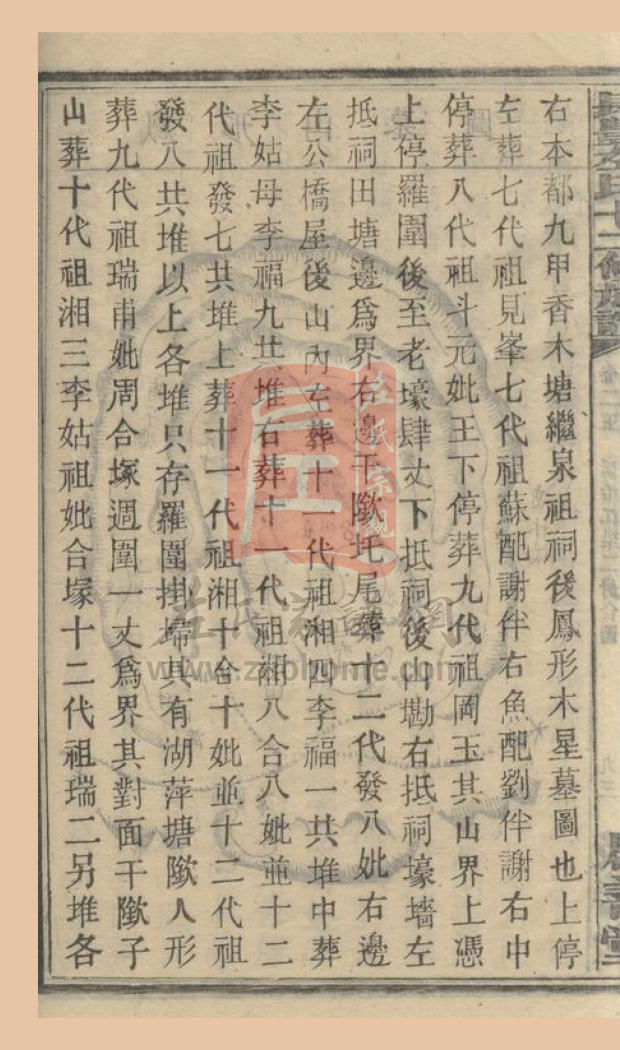 右本都九甲香木塘繼泉祖祠後鳳形木星墓圖也上停
左葬七代祖見峯七代祖蘇配謝伴右魚配劉伴謝右中
停葬八代祖斗元妣王下停葬九代祖岡玉其山界上憑
上停羅圍後至老壕肆丈下抵祠後山勘右抵祠壕墻左
抵祠田塘邊爲界右邊干隞圫尾葬十二代發八妣右邊
左公橋屋後山內左葬十一代祖湘四李福一共堆中葬
李姑母李福九共堆右葬十一代祖湘八合八妣並十二
代祖發七共堆上葬十一代祖湘十合十妣並十二代祖
發八共堆以上各堆只存羅圍掛埽其有湖萍塘隞人形
葬九代祖瑞甫妣周合塚週圍一丈爲界其對面干隞子
山葬十代祖湘三李姑祖妣合塚十二代祖瑞二另堆各
www.zhaohome.com